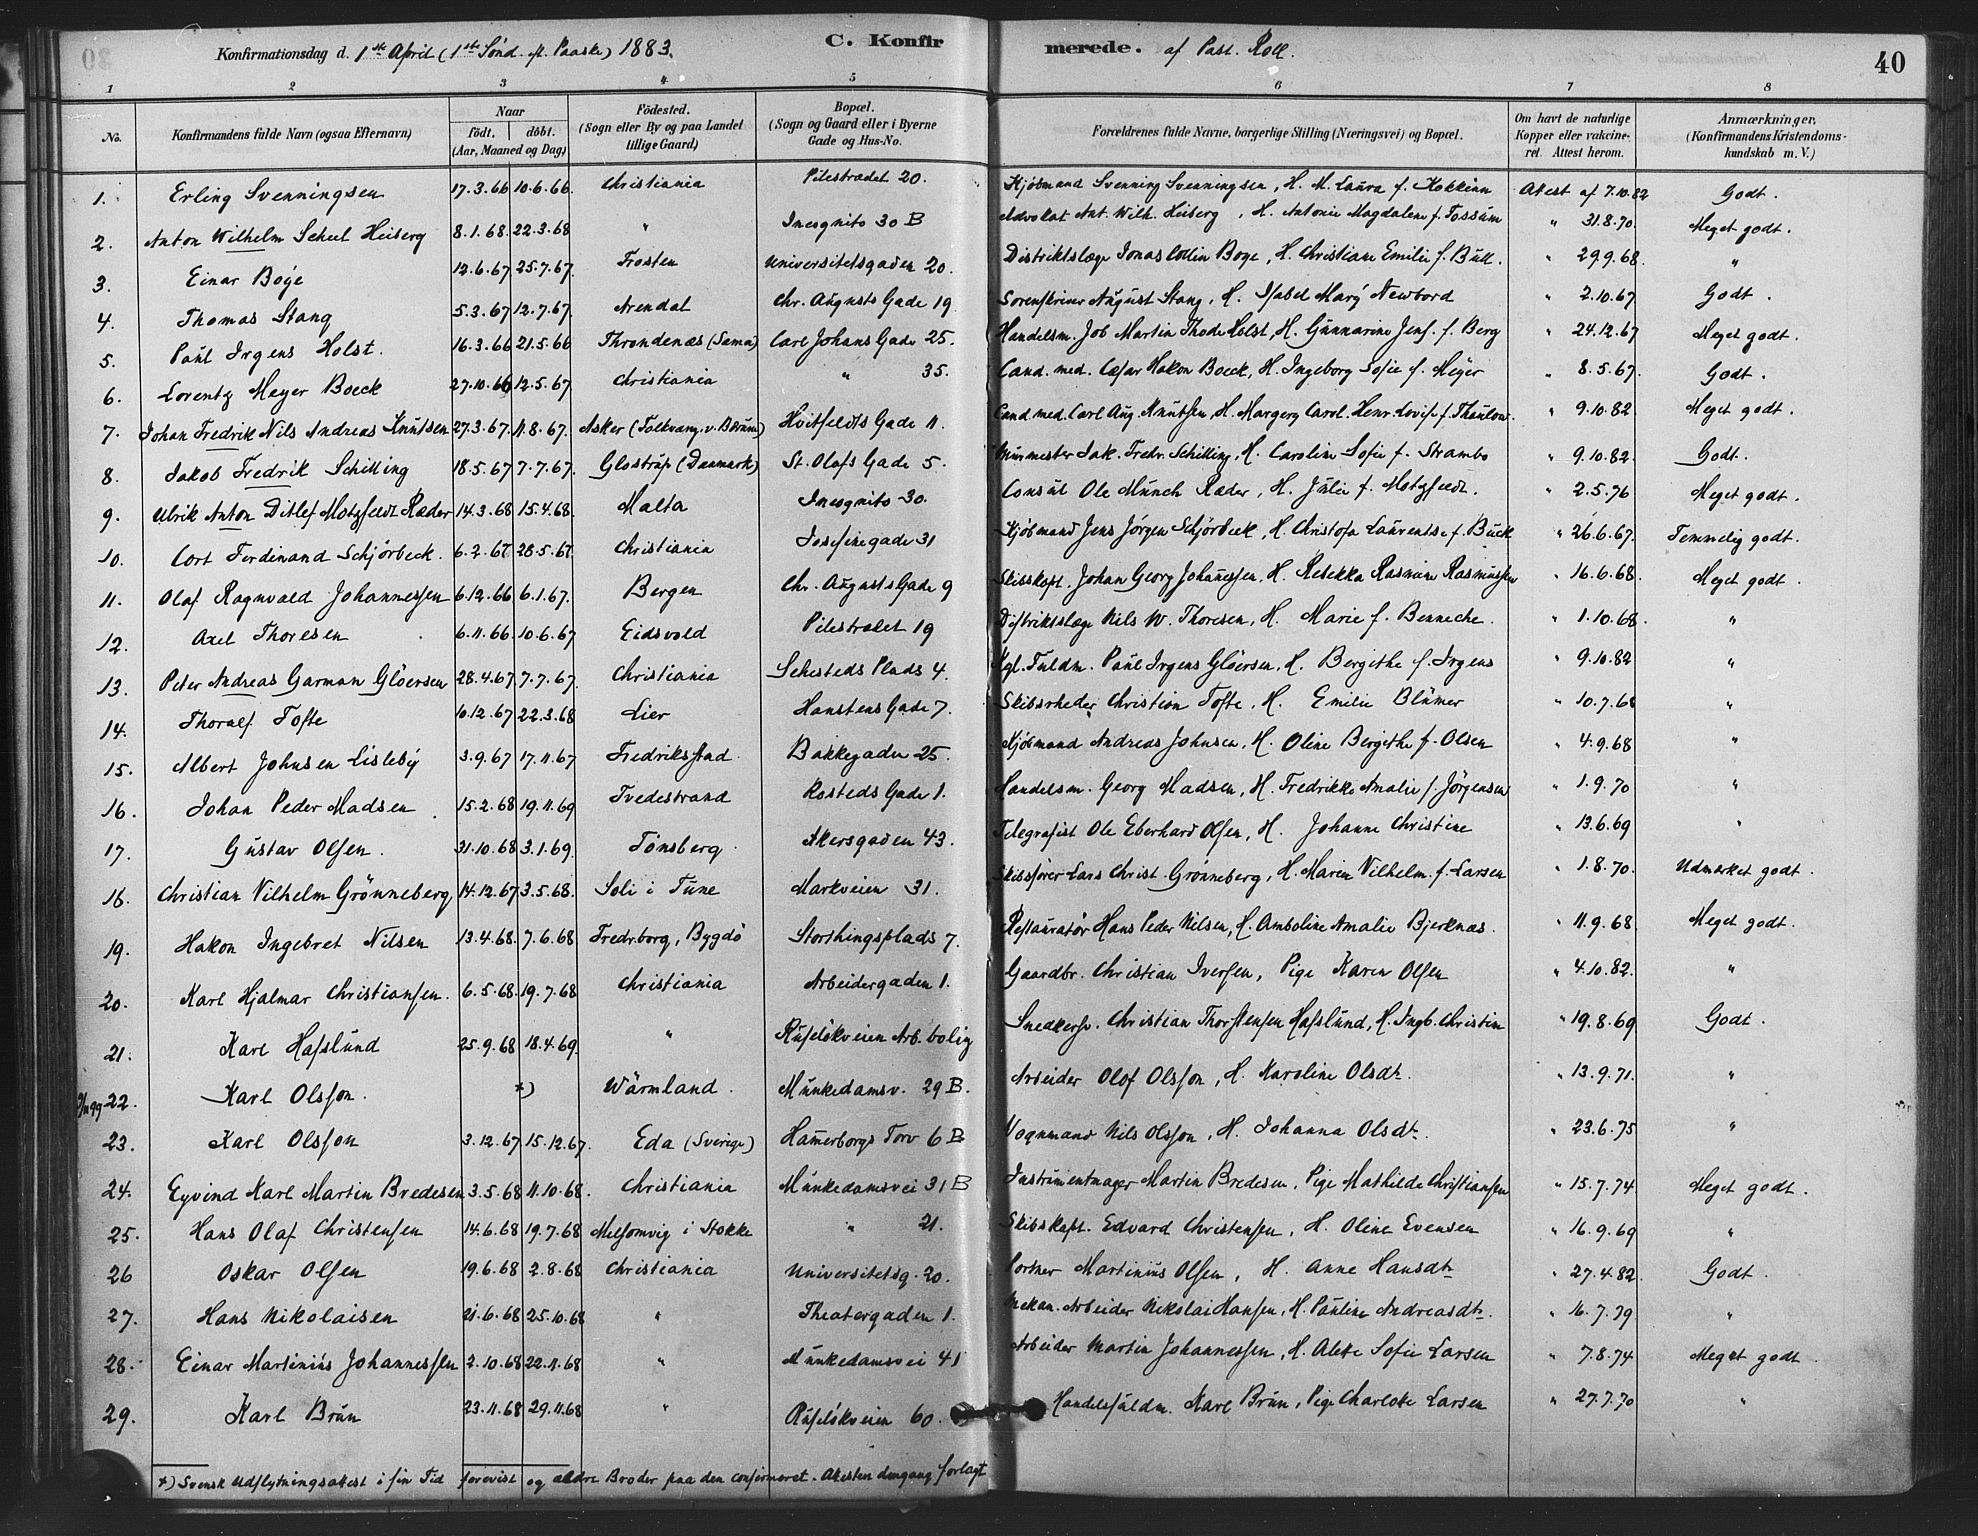 Konfirmationsdag d. 1ste April (1ste Sönd. ft. Paaske) 1883. C. Konfirmerede. af Past. Roll. 40
1 2 3 4 5 6 7 8
No. Konfirmandens fulde Navn (ogsaa Efternavn) Naar Födt. döbt. (Aar, Maaned og Dag) Födested. (Sogn eller By og paa Landet tillige Gaard) Bopæl. (Sogn og Gaard eller i Byerne Gade og Hus-No. Forældrenes fulde Navne, borgerlige Stilling (Næringsvei) og Bopæl. Om havt de naturlige Kopper eller vakcineret. Attest herom. Anmærkninger. (Konfirmandens Kristendomskundskab m. V.)
1. Erling Svenningsen 17.3.66 10.6.66. Christiania Pilestrædet 20. Kjöbmand Svenning Svenningsen, H. M. Laura f. Kokkinn Attest af 7.10.82 Godt.
2. Anton Wilhelm Scheel Heiberg 8.1.68. 22.3.68 " Incognito 30 B Advokat Ant. Wilh. Heiberg, H. Antonie Magdalene f. Tossum " 31.8.70. Meget godt.
3. Einar Boye 12.6.67 25.7.67. Trosten Universitetsgaden 20. Distriktslæge Jonas Collin Boye, H. Christiane Emilie f. Bull. " 29.9.68. "
4. Thomas Stang 5.3.67 12.7.67. Arendal Chr. Augusts Gade 19 Sorenskriver August Stang, H. Isabel Mary Newbord " 2.10.67 Godt.
5. Paul Irgens Holst. 16.3.66 21.5.66 Throndenæs (Sama) Carl Johans Gade 25. Handelsm. Job Martin Thode Holst, H. Gunnarine Jens. f. Berg " 24.12.67 Meget godt.
6. Lorentz Meyer Boeck 27.10.66 12.5.67. Christiania " 35. Cand. med. Cæsar Hakon Boeck, H. Ingeborg Sofie f. Meyer " 8.5.67. Godt.
7. Johan Fredrik Nils Andreas Knutsen 27.3.67. 11.8.67. Asker (Folkvang v. Bærum) Hvitfeldts Gade 11. Cand. med. Carl Aug. Knutsen, H. Margery Carol. Henr. Lovise f. Thaulow. " 9.10.82. Meget godt.
8. Jakob Fredrik Schilling 18.5.67 7.7.67. Glostrup (Danmark) St. Olafs Gade 5. Murmester Jak. Fredr. Schilling, H. Caroline Sofie f. Strambo " 9.10.82. Godt.
9. Ulrik Anton Ditlef Motzfeldt Ræder 14.3.68 15.4.68. Malta Incognito 30. Consul Ole Munch Ræder, H. Julie f. Motzfeldt. " 2.5.76 Meget godt.
10. Cort Ferdinand Schjörbeck. 6.2.67 28.5.67. Christiania Josefinegade 31 Kjöbmand Jens Jörgen Schjörbeck, H. Christofa Laurentse f. Buck " 26.6.67. Temmelig godt.
11. Olaf Ragnvald Johannessen 6.12.66 6.1.67. Bergen Chr. Augusts Gade 9 Skibskapt. Johan Georg Johannessen, H. Rebekka Rasmine Rasmussen " 16.6.68. Meget godt.
12. Axel Thoresen 6.11.66. 10.6.67 Eidsvold Pilestrædet 19 Distriktslæge Nils W. Thoresen, H. Marie f. Benneche. " 1.10.68. "
13. Peter Andreas Garman Glöersen 28.4.67 7.7.67. Christiania Sehesteds Plads 4. Kgl. Fuldm. Paul Irgens Glöersen, H. Bergithe f. Irgens " 9.10.82 "
14. Thoralf Tofte 10.12.67 22.3.68 Lier Hanstens Gade 7. Skibsrheder Christian Tofte, H. Emilie Blümer " 10.7.68 "
15. Albert Johnsen Lisleby 3.9.67 17.11.67 Fredriksstad. Bakkegaden 25. Kjöbmand Andreas Johnsen, H. Oline Bergethe f. Olsen " 4.9.68 "
16. Johan Peder Madsen 15.2.68 19.11.69 Tvedestrand Rosteds Gade 1. Handelsm. Georg Madsen, H. Fredrikke Amalie f. Jörgensen " 1.9.70 "
17. Gustav Olsen. 31.10.68 3.1.69. Tönsberg. Akersgaden 43. Telegrafist Ole Eberhard Olsen, H. Johanne Christine " 13.6.69 "
18. Christian Vilhelm Grönneberg, 14.12.67 3.5.68. Soli i Tune Markveien 31. Skibsförer Lars Christ. Grönneberg, H. Maren Vilhelm. f. Larsen " 1.8.70. Udmærket godt.
19. Hakon Ingebret Nilsen 13.4.68. 7.6.68 Fredr.borg, Bygdö Storthingsplads 7. Restauratör Hans Peder Nilsen, H. Amboline Amalie Bjerknæs. " 11.9.68. Meget godt.
20. Karl Hjalmar Christiansen. 6.5.68. 19.7.68 Christiania Arbeidergaden 1. Gaardbr. Christian Iversen, Pige Karen Olsen " 4.10.82. "
21. Karl Hafslund 25.9.68 18.4.69. " Ruselökveien Arb. bolig Snedkersv. Christian Thorstensen Hafslund, H. Ingb. Christin " 19.8.69 Godt.
22. Karl Olsson. *) Wärmland. Munkedamsv. 29 B. Arbeider Olof Olsson, H. Karoline Olsdt. " 13.9.71. "
23. Karl Olsson 3.12.67 15.12.67. Eda (Sverige) Hamerborgs Torv 6 B Vognmand Nils Olsson, H. Johanna Olsdt. " 23.6.75 "
24. Eyvind Karl Martin Bredesen 3.5.68 11.10.68. Christiania Munkedamsvei 31 B Instrumentmager Martin Bredesen, Pige Mathilde Christiansen " 15.7.74 Meget godt.
25. Hans Olaf Christensen 14.6.68 19.7.68 Melsomvig i Stokke " 21. Skibskapt. Edvard Christensen, H. Oline Evensen " 16.9.69 "
26 Oskar Olsen 19.6.68 2.8.68 Christiania Universitetsg. 20. Portner Martinius Olsen, H. Anne Hansdt. " 27.4.82. Godt.
27. Hans Nikolaisen 21.6.68 25.10.68 " Theatergaden 1. Mekan. Arbeider Nikolai Hansen, H. Pauline Andreasdt. " 16.7.79 "
28. Einar Martinius Johannessen 2.10.68 22.11.68 " Munkedamsvei 41 Arbeider Martin Johannessen, H. Alette Sofie Larsen " 7.8.74 Meget godt.
29. Karl Brun 23.11.68 29.11.68 " Ruselökveien 60. Handelsfuldm. Karl Brun, Pige Charlotte Larsen " 27.7.70 "
*) Svensk Udflytningsattest i sin Tid forevist og ældre Broder paa den confirmeret. Attesten dengang forlagt